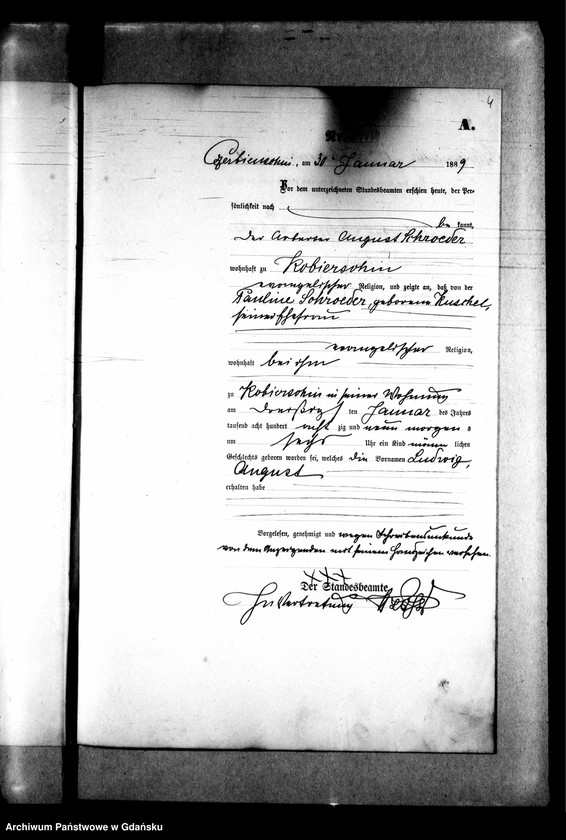 4
A.
am 30 Januar 1889
Vor dem unterzeichneten Standesbeamten erschien heute, der Per-
sönlichkeit nach
be kannt,
Der Arbeiter August Schroeder
wohnhaft zu Kobiersohin
evangelischer Religion, und zeigte an, daß von der
Pauline Schroeder, geborene Kuschel,
seiner Ehefrau
evangelischer Religion,
wohnhaft bei ihm
zu Kobiersohin in seiner Wohnung
am dreißigsten Januar des Jahrs
tausend acht hundert acht zig und neun morgens
um sechs Uhr ein Kind männ lichen
Geschlechts geboren worden sei, welches die Vornamen Ludwig,
August
erhalten habe
Vorgelesen, genehmigt und wegen Schreibensunkunde
von dem Anzeigenden mit seinem Handzeichen versehen.
XXX
Der Standesbeamte.
In Vertretung
Archiwum Państwowe w Gdańsku